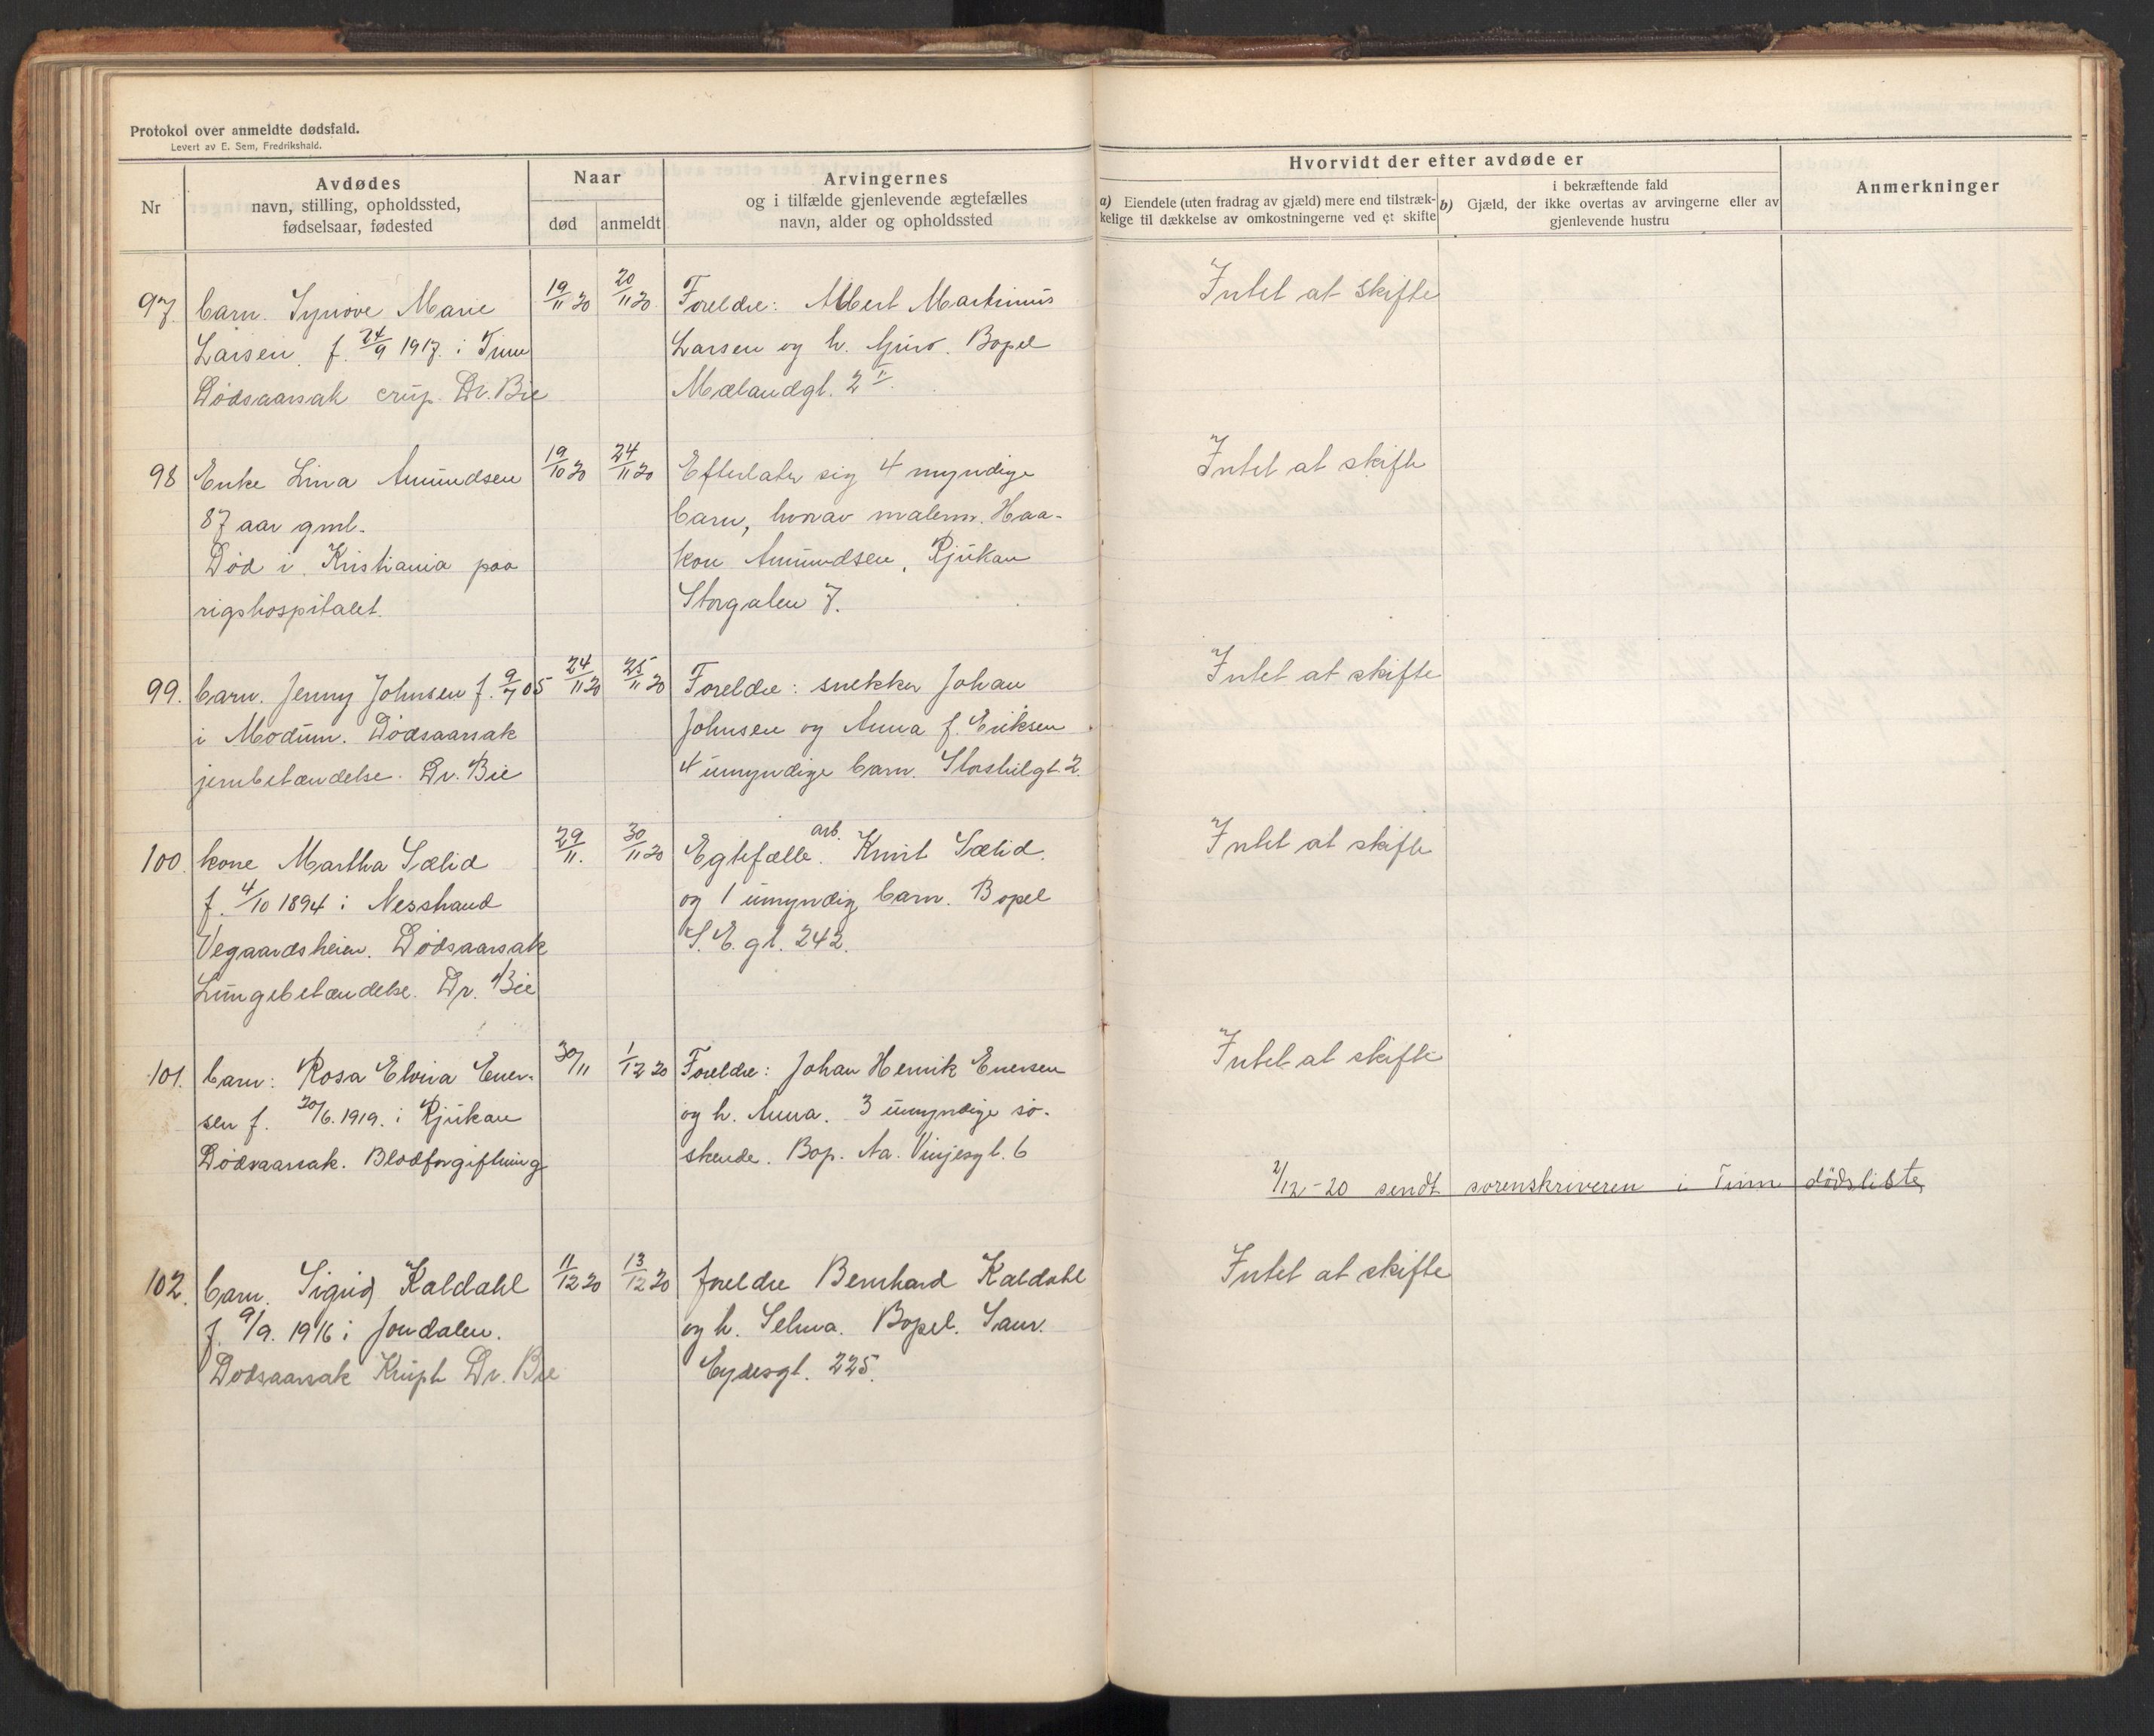 Protokol over anmeldte dødsfald.
Levert av E. Sem, Fredrikshald.
Nr
Avdødes
navn, stilling, opholdssted,
fødselsaar, fødested
Naar
død
anmeldt
Arvingernes
og i tilfælde gjenlevende ægtefælles
navn, alder og opholdssted
Hvorvidt der efter avdøde er
a) Eiendele (uten fradrag av gjæld) mere end tilstræk-
kelige til dækkelse av omkostningerne ved et skifte
i bekræftende fald
b) Gjæld, der ikke overtas av arvingerne eller av
gjenlevende hustru
Anmerkninger
97. barn. Synøve Marie
Larsen. f. 24/9 1917. i Tinn
Dødsaarsak crup. Dr. Bie
19/11 20
20/11 20.
Foreldre: Albert Martinius
Larsen og h. Guro. Bopel
Mælandgt. 2 II.
Intet at skifte
98 Enke Lina Amundsen
87 aar gml.
Død i Kristiania paa
rigshospitalet.
19/10 20
24/11 20
Efterlater sig 4 myndige
barn, hvorav malerm. Haa-
kon Amundsen, Rjukan
Storgaten 7.
Intet at skifte
99. barn. Jenny Johnsen f. 9/7 05
i Modum. Dødsaarsak
jernbetændelse. Dr. Bie
24/11 20
25/11 20
Foreldre: snekker Johan
Johnsen og Anna f. Eriksen
4 umyndige barn. Storstulgt. 2.
Intet at skifte
100. kone Martha Sælid
f. 4/10 1894 i Nesstrand
Vegaardsheien. Dødsaarsak
Lungebetændelse. Dr. Bie
29/11.
30/11 20
Egtefælle. arb. Knut Sælid.
og 1 umyndig barn. Bopel
S. E. gt. 242.
Intet at skifte
101. barn: Rosa Elvira Ener-
sen f. 20/6. 1919. i Rjukan
Dødsaarsak. Blodforgiftning
30/11
1/12 20
Foreldre: Johan Henrik Enersen
og h. Anna. 3 umyndige sø-
skende. Bop. Aa. Vinjesgt. 6
Intet at skifte
2/12-20 sendt sorenskriveren i Tinn dødsliste
102. barn. Sigrid Kaldahl
f. 9/9. 1916 i Jondalen.
Dødsaarsak Krupt Dr. Bie
11/12 20
13/12 20
foreldre Bernhard Kaldahl
og h. Selma. Bopel. Sam.
Eydesgt. 225.
Intet at skifte